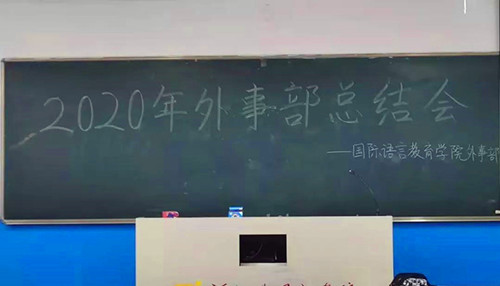 2020年外事部总结会
——国际语言教育学院外事部